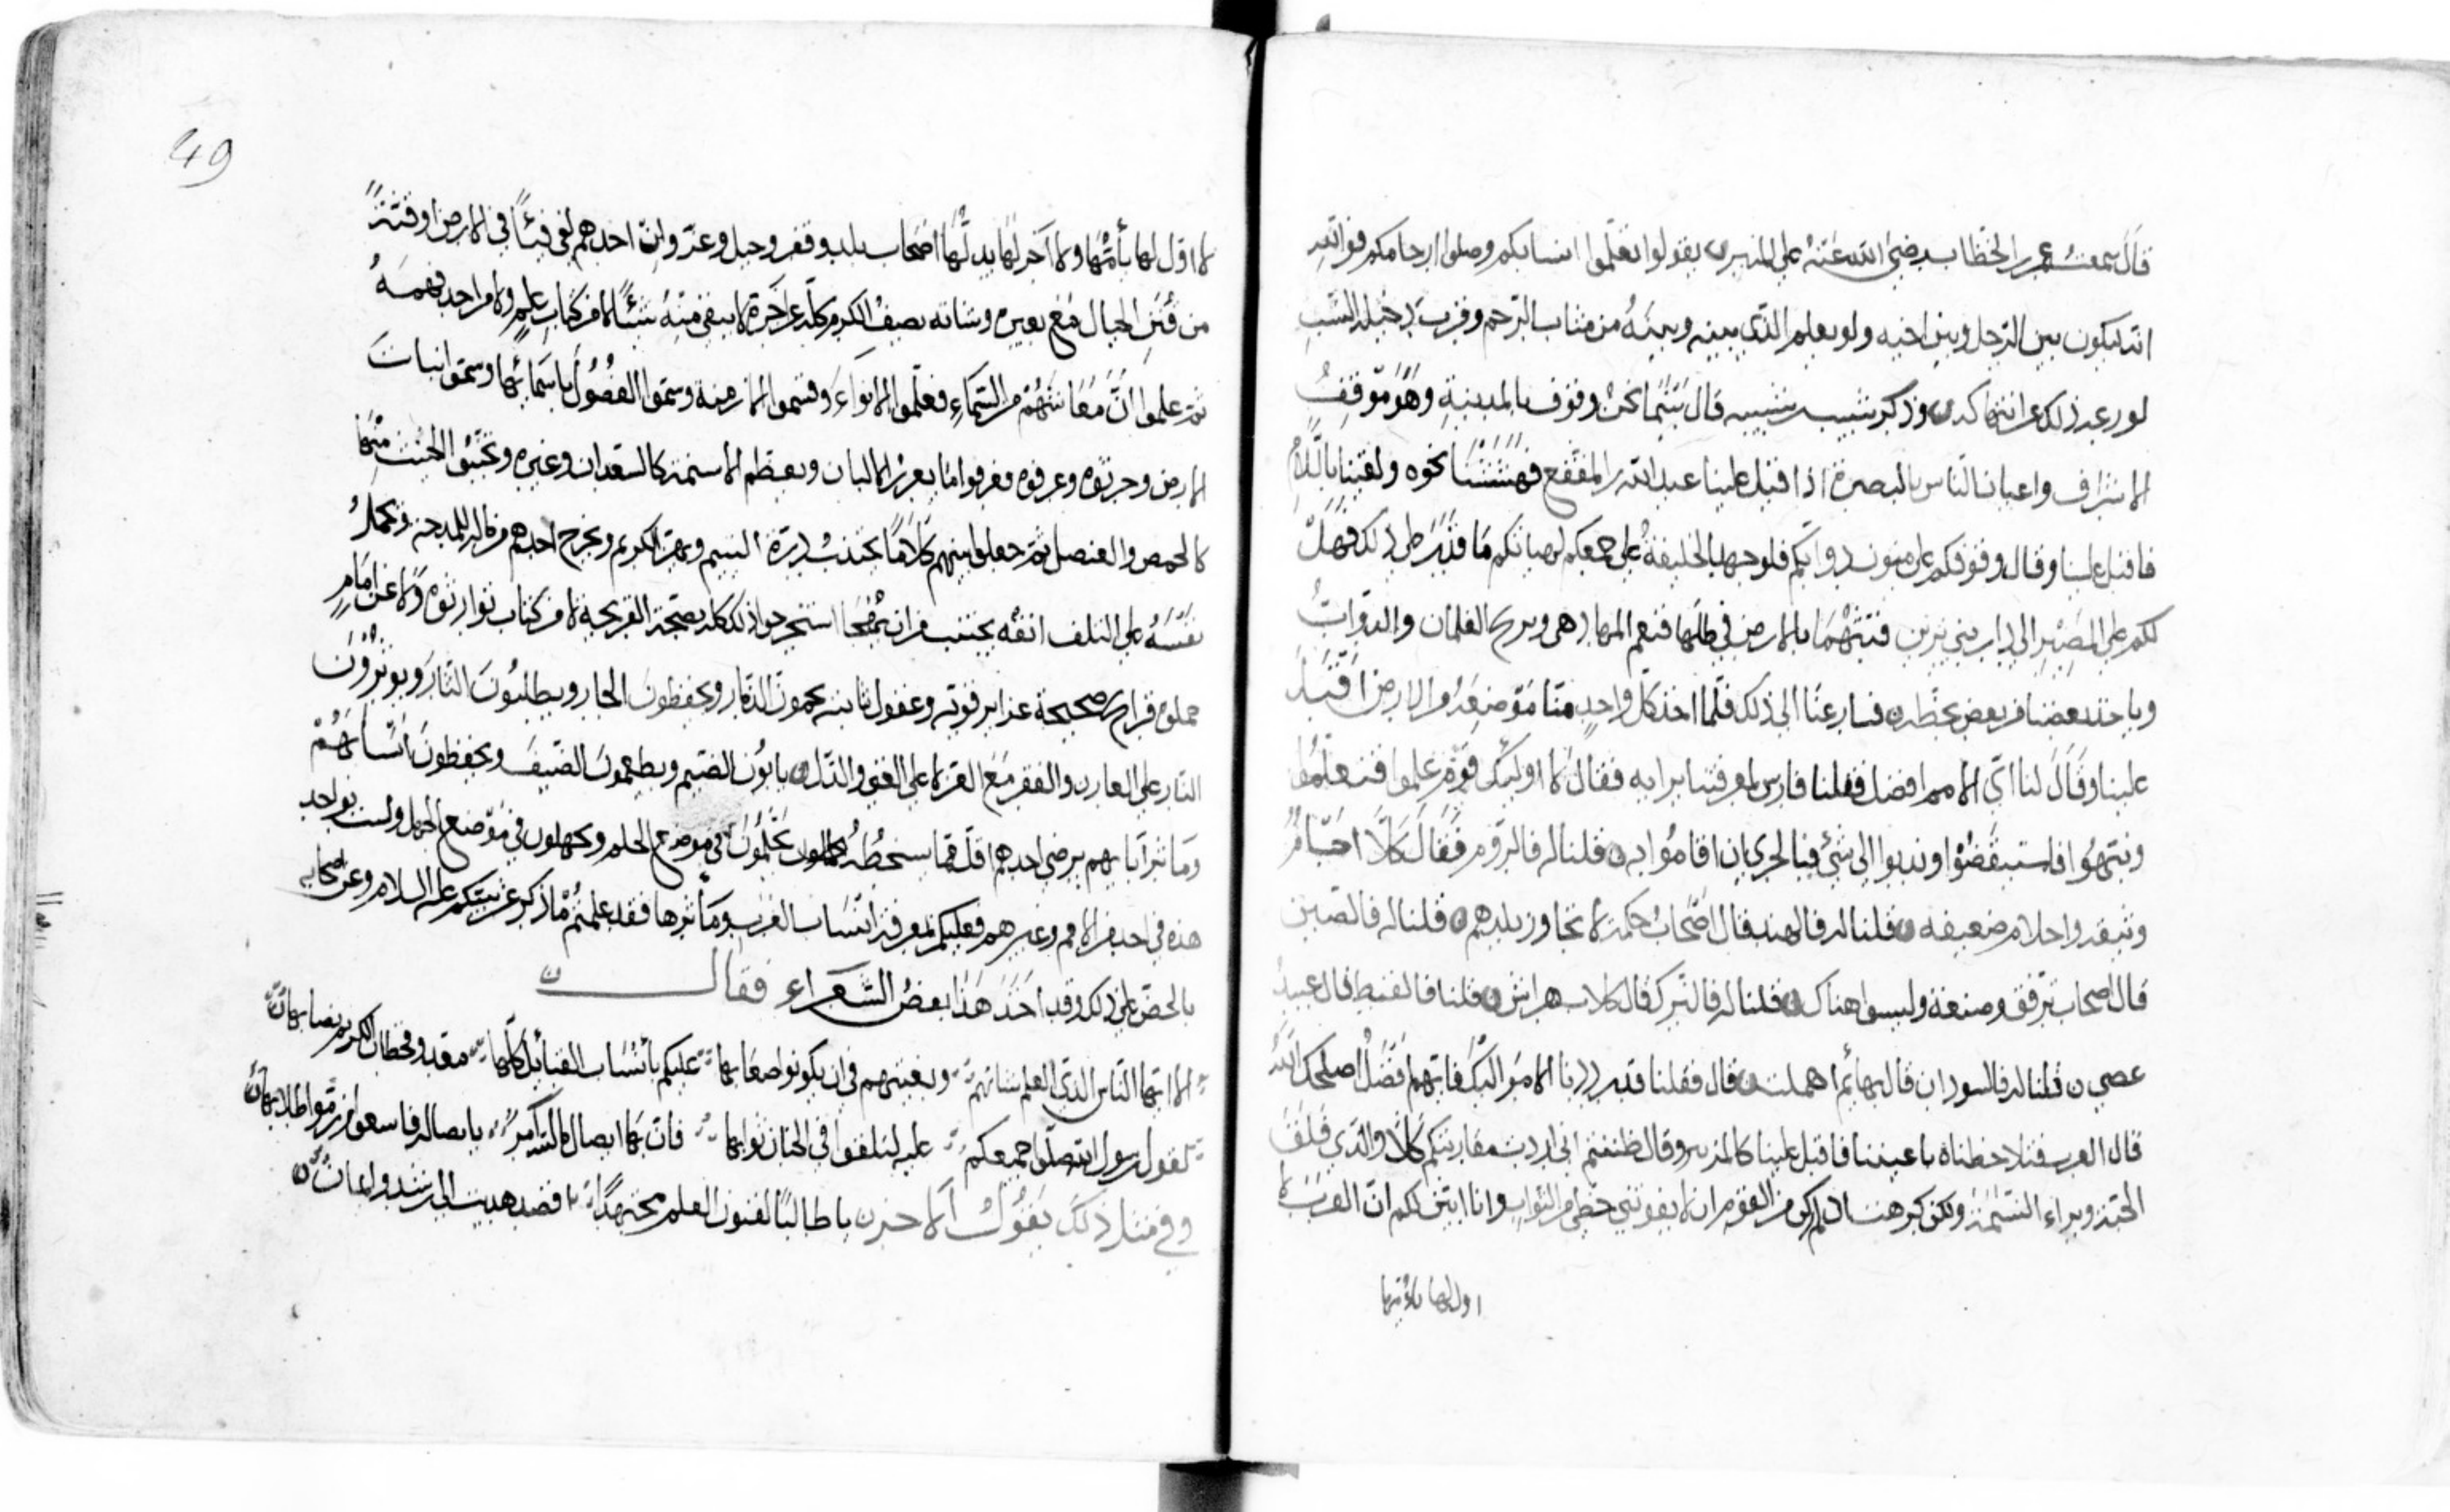 قال سمعت عمر بن الخطاب رضي الله عنه على المنبر يقول تعلموا انسابكم وصلوا ارحامكم فوالله
انه ليكون بين الرجل وبين اخيه ولو يعلم الذي بينه وبينه من الرحم وقرب
لورعه ذلك عن انتهاكه وذكر شبيب بن شيبه قال بينما نحن وقوف بالمدينة وهو موقف
الاشراف واعيان الناس بالبصرة اذ اقبل علينا عبد الله بن المقفع فهششنا نحوه ولقينا بالسلام
فاقبل علينا وقال وقوفكم على متون دوابكم فلو جهد الخليفة على جمعكم لهيا لكم ما قدر على ذلك فهل
لكم على المصير الى دار بني فنتمهما بالارض في ظلها فنعم المهاد هي ونريح الغلمان والدواب
وياخذ بعضنا من بعض بحظه فسارعنا الى ذلك فلما اخذ كل واحد منا موضعه من الارض اقبل
علينا وقال لنا اي الامم افضل فقلنا فارس لمعرفتنا برايه فقال لا اوليك قوم علموا فتعلموا
ونبهوا فاستيقضوا وندبوا الى شيء فبالحري ان اقاموا به قلنا له فالروم فقال كلا احسام
وثيقه واحلام ضعيفه قلنا له فالهند قال اصحاب حكمة لا تجاوز بلدهم قلنا له فالصين
قال اصحاب ترفق وصنعة وليسوا هناك قلنا له فالترك قال كلاب هراش قلنا فالقبط قال عبيد
عصي قلنا له فالسودان قال بهائم اهملت قال فقلنا قد رددنا الامر اليك فايهم افضل اصلحك الله
قال العرب فتلاحظناه باعيننا فاقبل علينا كالمزبر وقال ظننتم اني اردت مقاربتكم كلا والذي فلق
الحبة وبراء النسمة ولكن كرهت اذ لم اكن من القوم ان لا يفوتني حظي من الثواب وانا ابين لكم ان العرب لا
اول لها يأمها
49
لا اول لها يأمها ولا آخر لها يدلها اصحاب بلد وقفر وجبل وعر وان احدهم لفي في الارض او قنة
من قنن الجبال مع بعيره وشاته يصف الكرم كله عن اخره لا يبقي منه شيئا لا من كتاب علم ولا من احد فهمه
ثم علموا ان معاشهم من السماء فعلموا الانواء وقسموا الازمنة وسموا الفصول باسمائها وسموا نبات
الارض وجربوه وعرفوه فعرفوا ما يغزر الالبان ويعظم الاسنمة كالسعدان وغيره ويخبث منها
كالحمض والعنصل ثم جعلوا بينهم كلاما يجذب درة اللئيم ويهز الكريم ويخرج احدهم من ماله للمدحة ويحمل
نفسه على التلف انفه يجتنب من ان يهجا استخرجوا ذلك كله بصحة القريحة لا من كتاب توارثوه ولا عن امام
حملوه قرايح صحيحة غزاير قوية وعقول ثابته يحمون الذمار ويحفظون الجار ويطلبون الثار ويوثرون
النار على العار والفقر مع العز لا على الغنى والذل يابون الضيم ويطعمون الضيف ويحفظون انسابهم
ومآثر آبايهم يرضي احدهم اقل مما يسخطه يحلمون في موضع الحلم ويجهلون في موضع الجهل ولست بواجد
هذه في احد من الامم وغيرهم فعليكم بمعرفة انساب العرب ومآثرها فقد علمتم ما ذكر عن نبيكم عليه السلام وعن اصحابه
بالحض على ذلك وقد اخذ هذا بعض الشعراء فقال
الا ايها الناس الذي العلم شانهم ويغنيهم في ان يكونوا صعابها عليكم بأنساب القبائل كلها معد وقحطان الكريم نصابها
كقول رسول الله صلوا جميعكم عليه لتلقوا في الجنان ثوابها فان بها ايصال يا بصاله فاسعوا طلابها
وفي مثل ذلك يقول الاخر يا طالبا لفنون العلم مجتهدا قصد هديت الى رشد وايمان